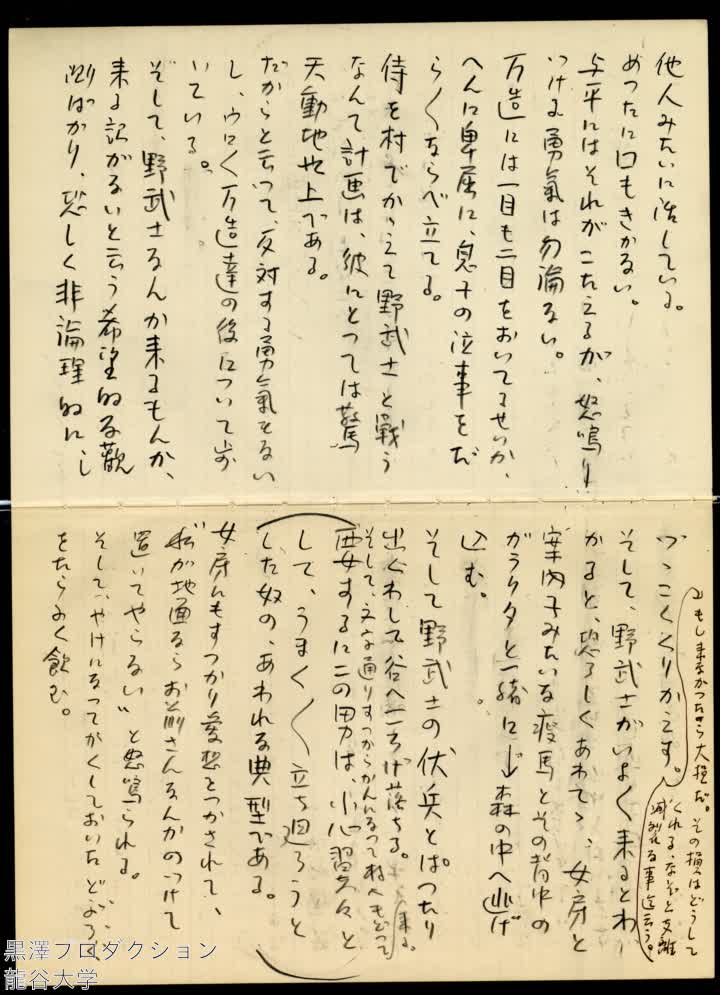 他人みたいに活している。
めったに口もきかない。
与平にはそれがこたえるが、怒鳴り
つける勇氣は勿論ない。
万造には一目も二目をおいてるせいか、
へんに卑屈に、息子の泣事をだ
らくならべ立てる。
侍を村でかゝえて野武士と戰う
なんて計画は、彼にとっては驚
天動地以上である。
だからと云って、反対する勇氣もない
し、ウロく万造達の後について歩
いている。
そして、野武士なんか来るもんか、
来る訳がないと云う希望的な観
測ばかり、恐しく非論理的に、し
つゝこくくりかえす。
もし来なかったら大損だ。その損はどうして
くれる、なぞと支離
滅裂な事迄云う。
そして、野武士がいよく来るとわ
かると、恐ろしくあわてゝ、女房と
案内子みたいな痩馬とその背中の
ガラクタと一緒に 森の中へ逃げ
込む。
そして野武士の伏兵とばったり
出くわして谷へころげ落ちる。
そして、文字通りすっからかんになって村へもどって
来る。
要するにこの男は、小心翼々と
して、うまくく立ち廻ろうと
した奴の、あわれな典型である。
女房にもすっかり愛想をつかされて、
"私が地面ならお前さんなんかのっけて
置いてやらない"と怒鳴られる。
そして、やけになってかくしておいたどぶろく
をたらふく飲む。
黒澤プロダクション
龍谷大学